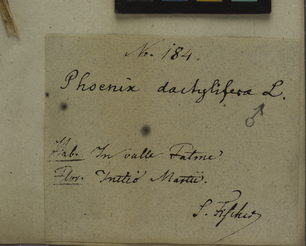 No. 184.
Phoenix dactylifera L.
♂
Hab. In valle Fatme.
Flor. Initio Martii.
S. Fischer